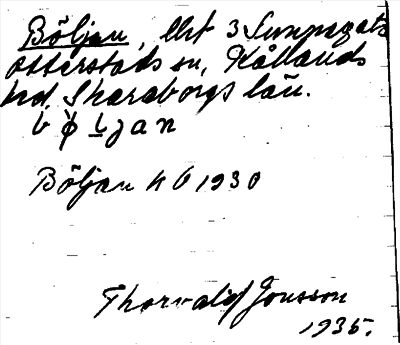 Böljan, llrt 3 Sunnegats
Otterstads sn, Kållands
hd, Skaraborgs län.
b ø L j a n
Böljan h b 1930
Thorvald Jonsson
1935.